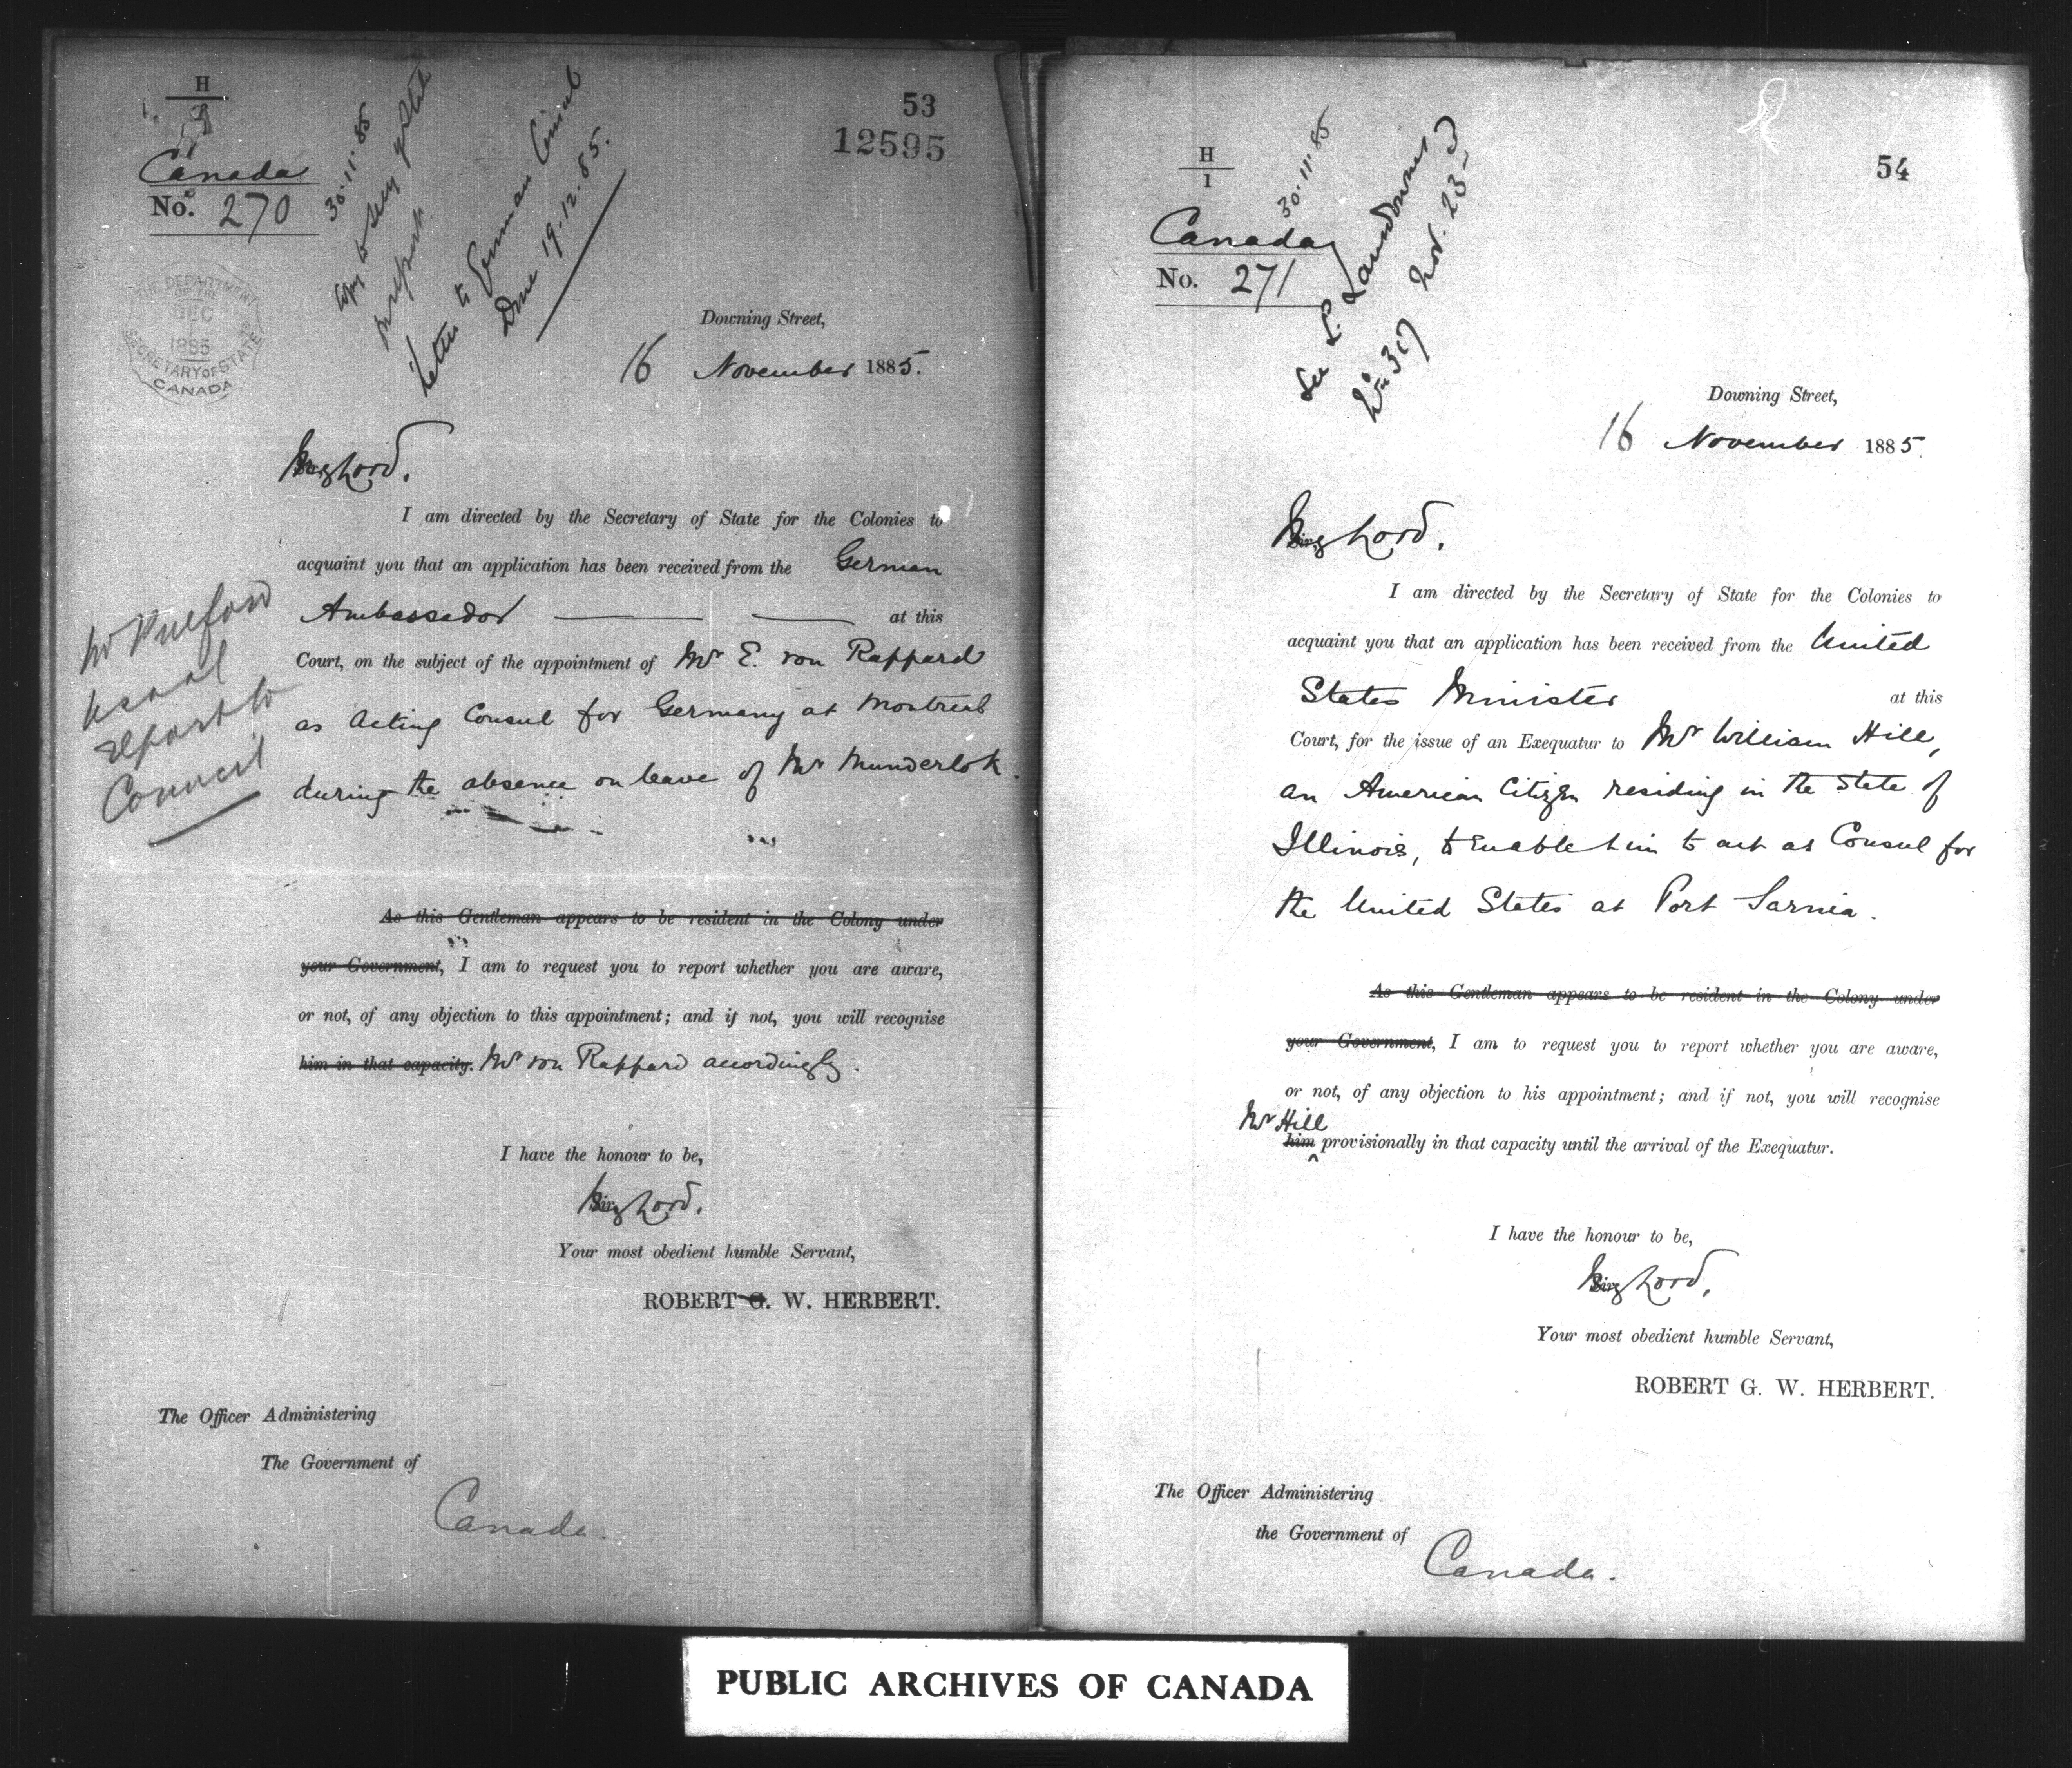 H
53
12595
Canada
No. 270
30.11.85
Copy to Secy of State
for report
Letter to German Consul
Done 19.12.85.
THE DEPARTMENT
OF THE
DEC
1885
SECRETARY OF STATE
CANADA
Downing Street,
16 November 1885.
My Lord,
I am directed by the Secretary of State for the Colonies to
acquaint you that an application has been received from the German
Ambassador at this
Court, on the subject of the appointment of Mr E. von Rappard
as Acting Consul for Germany at Montreal
during the absence on leave of Mr Munderloh.
usual
report to
Council
As this Gentleman appears to be resident in the Colony under
your Government, I am to request you to report whether you are aware,
or not, of any objection to this appointment; and if not, you will recognise
him in that capacity. Mr von Rappard accordingly.
I have the honour to be,
My Lord,
Your most obedient humble Servant,
ROBERT G. W. HERBERT.
The Officer Administering
The Government of
Canada.
H
1
54
Canada
No. 271
30.11.85
See L. Lansdowne
No 317 Nov. 23
Downing Street,
16 November 1885.
My Lord,
I am directed by the Secretary of State for the Colonies to
acquaint you that an application has been received from the United
States Minister at this
Court, for the issue of an Exequatur to Mr William Hill,
an American Citizen residing in the State of
Illinois, to enable him to act as Consul for
the United States at Port Sarnia.
As this Gentleman appears to be resident in the Colony under
your Government, I am to request you to report whether you are aware,
or not, of any objection to his appointment; and if not, you will recognise
Mr Hill
him provisionally in that capacity until the arrival of the Exequatur.
I have the honour to be,
My Lord,
Your most obedient humble Servant,
ROBERT G. W. HERBERT.
The Officer Administering
the Government of
Canada.
PUBLIC ARCHIVES OF CANADA